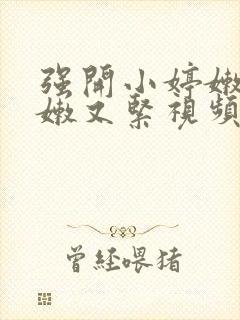 强開小婷嫩
嫩又緊視頻
曾經喂猪